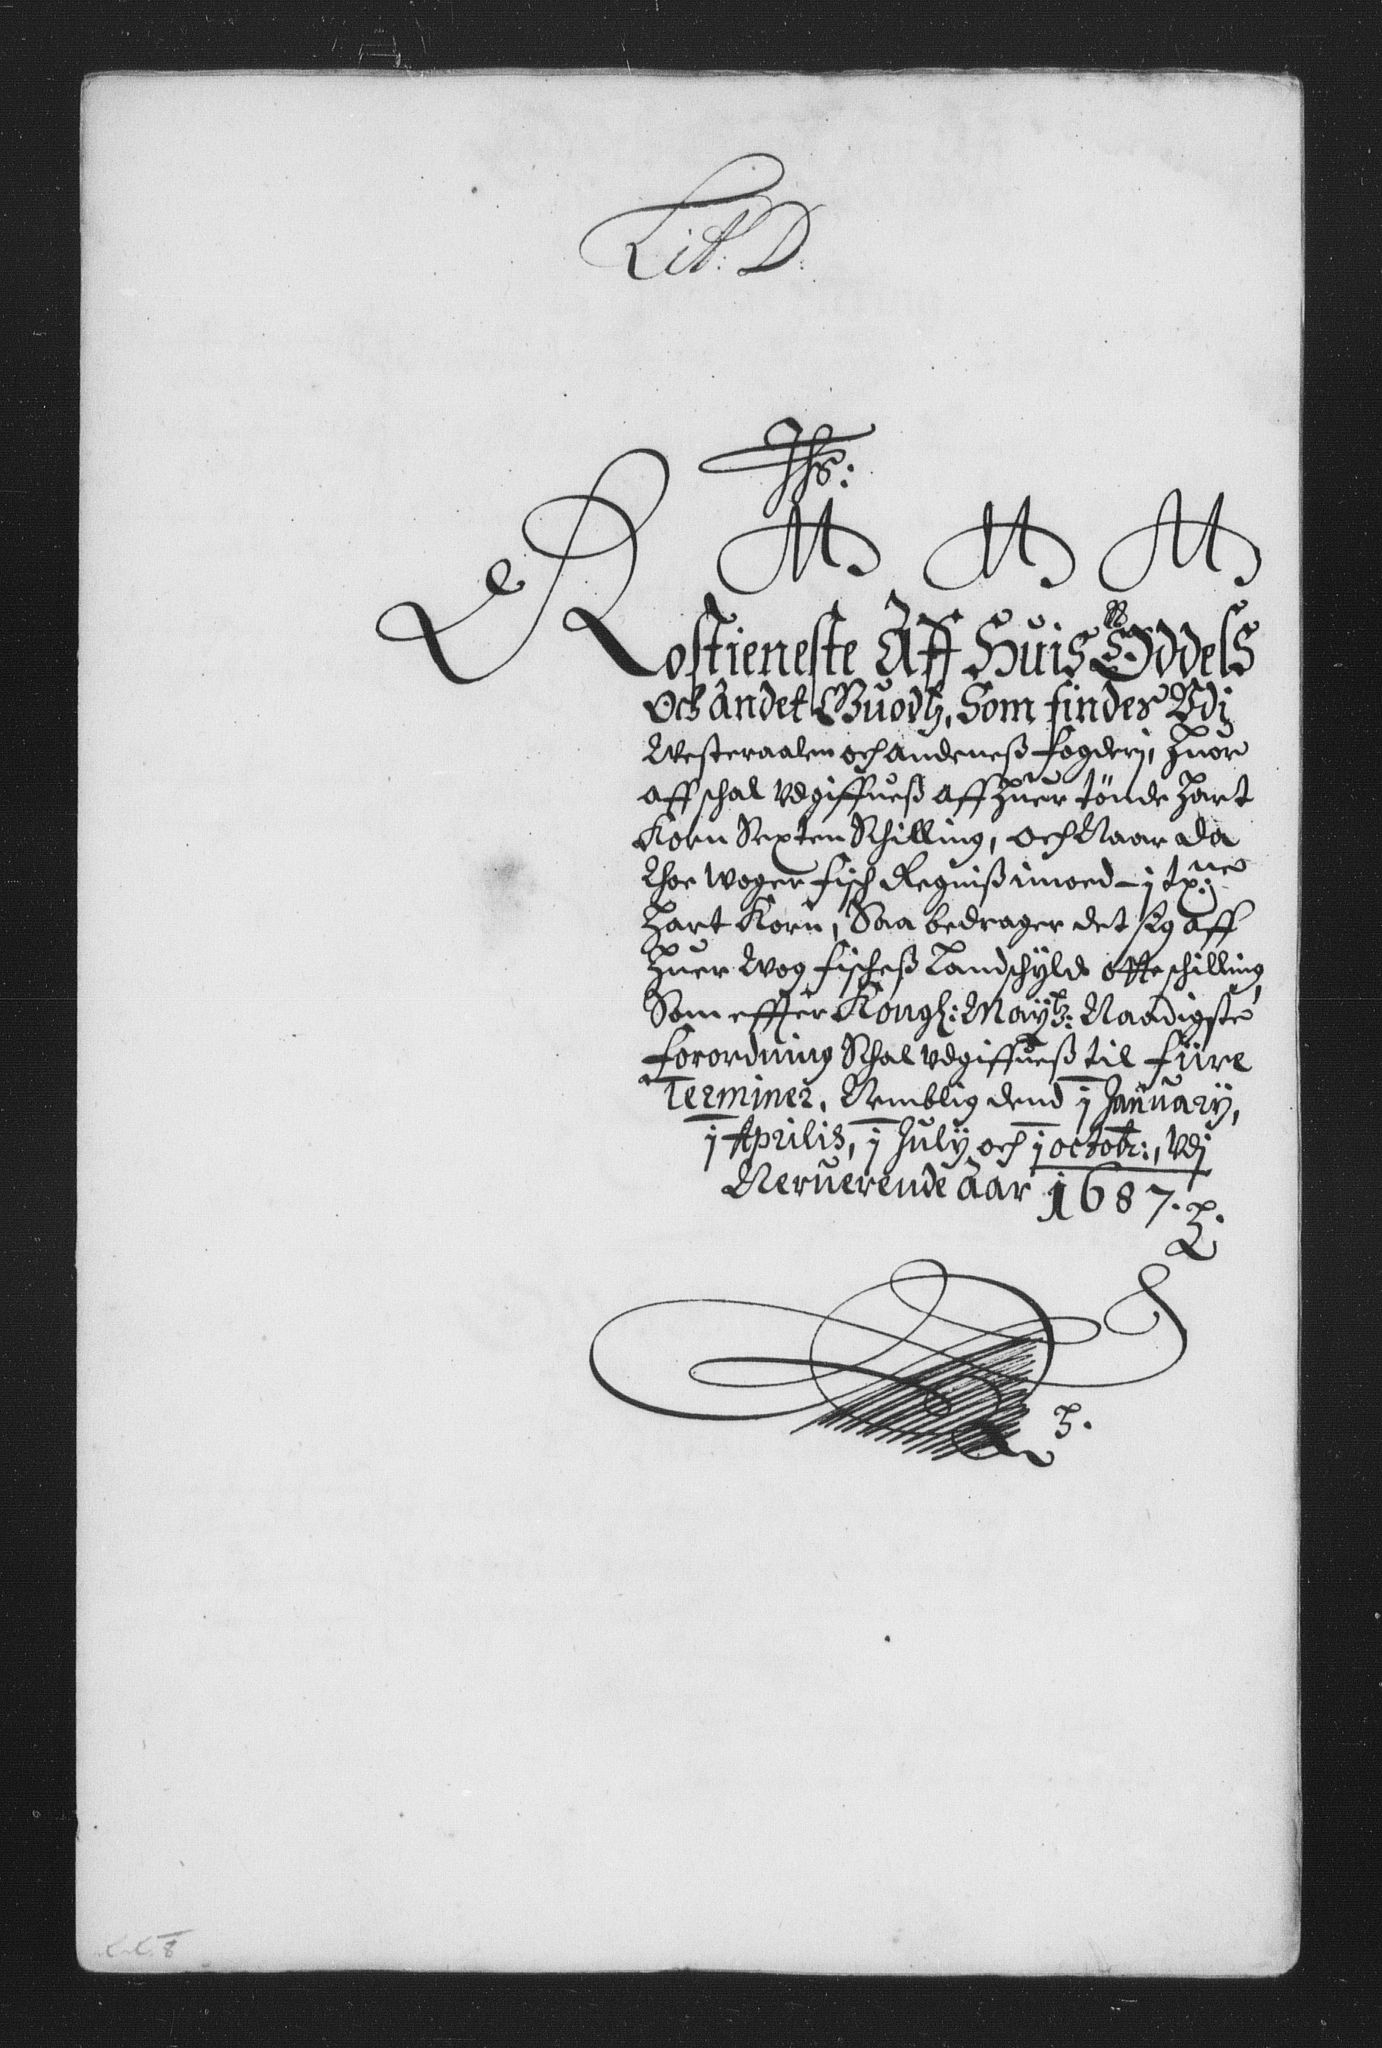 Lit: D:
Ihs:
M. M. M.
Rostieneste Aff Huis Oddels
Och Andet Guodtz, Som findes Vdj
Westeraalen och Andeness fogderj, huor
aff schal vdgiffuess aff huer tönde hart
Korn Sexten Schilling, och Naar da
thoe woger fisch Regniss imoed - 1 tø:ne
hart Korn, Saa bedrager det sig aff
huer Wog fischess Landschyld otte schilling,
Som effter Kongl: Maytz: Naadigste
forordning Schal vdgiffuess til fiire
Terminer, Nemblig dend 1 January,
1 Aprilis, 1 July och 1 octobr:, vdj
Neruerende Aar 1687.